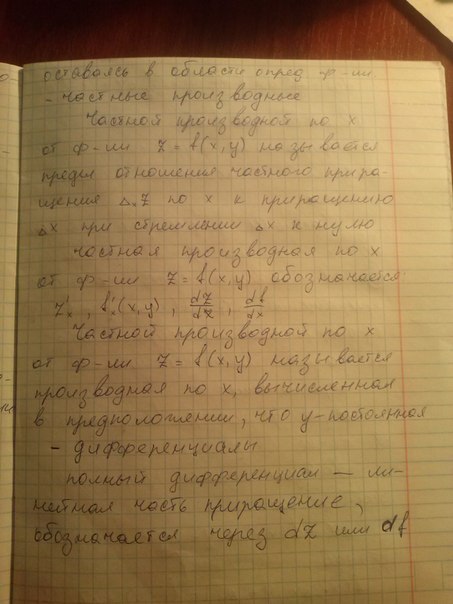 оставаясь в области опред ф-ии.
- частные производные
Частной производной по x
от ф-ии z = f(x,y) называется
предел отношения частного прира-
щения △ₓz по x к приращению
△x при стремлении △x к нулю
частная производная по x
от ф-ии z = f(x,y) обозначается:
z'ₓ, f'ₓ(x,y), dz/dx, df/dx
Частной производной по x
от ф-ии z = f(x,y) называется
производная по x, вычисленная
в предположении, что y-постоянная
- дифференциалы
полный дифференциал — ли-
нейная часть приращение,
обозначается через dz или df